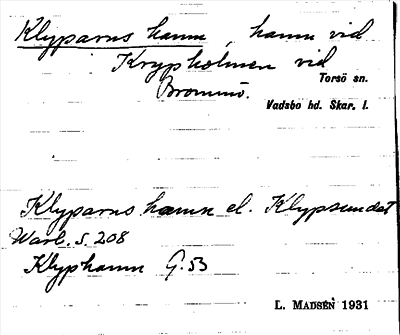 Klyparns hamn, hamn vid
Krypholmen vid
Torsö sn.
Brommö.
Vadsbo hd. Skar. l.
Klyparns hamn el. Klypsundet
Warl. s. 208
Klyphamn G. 53
L. MADSÉN 1931